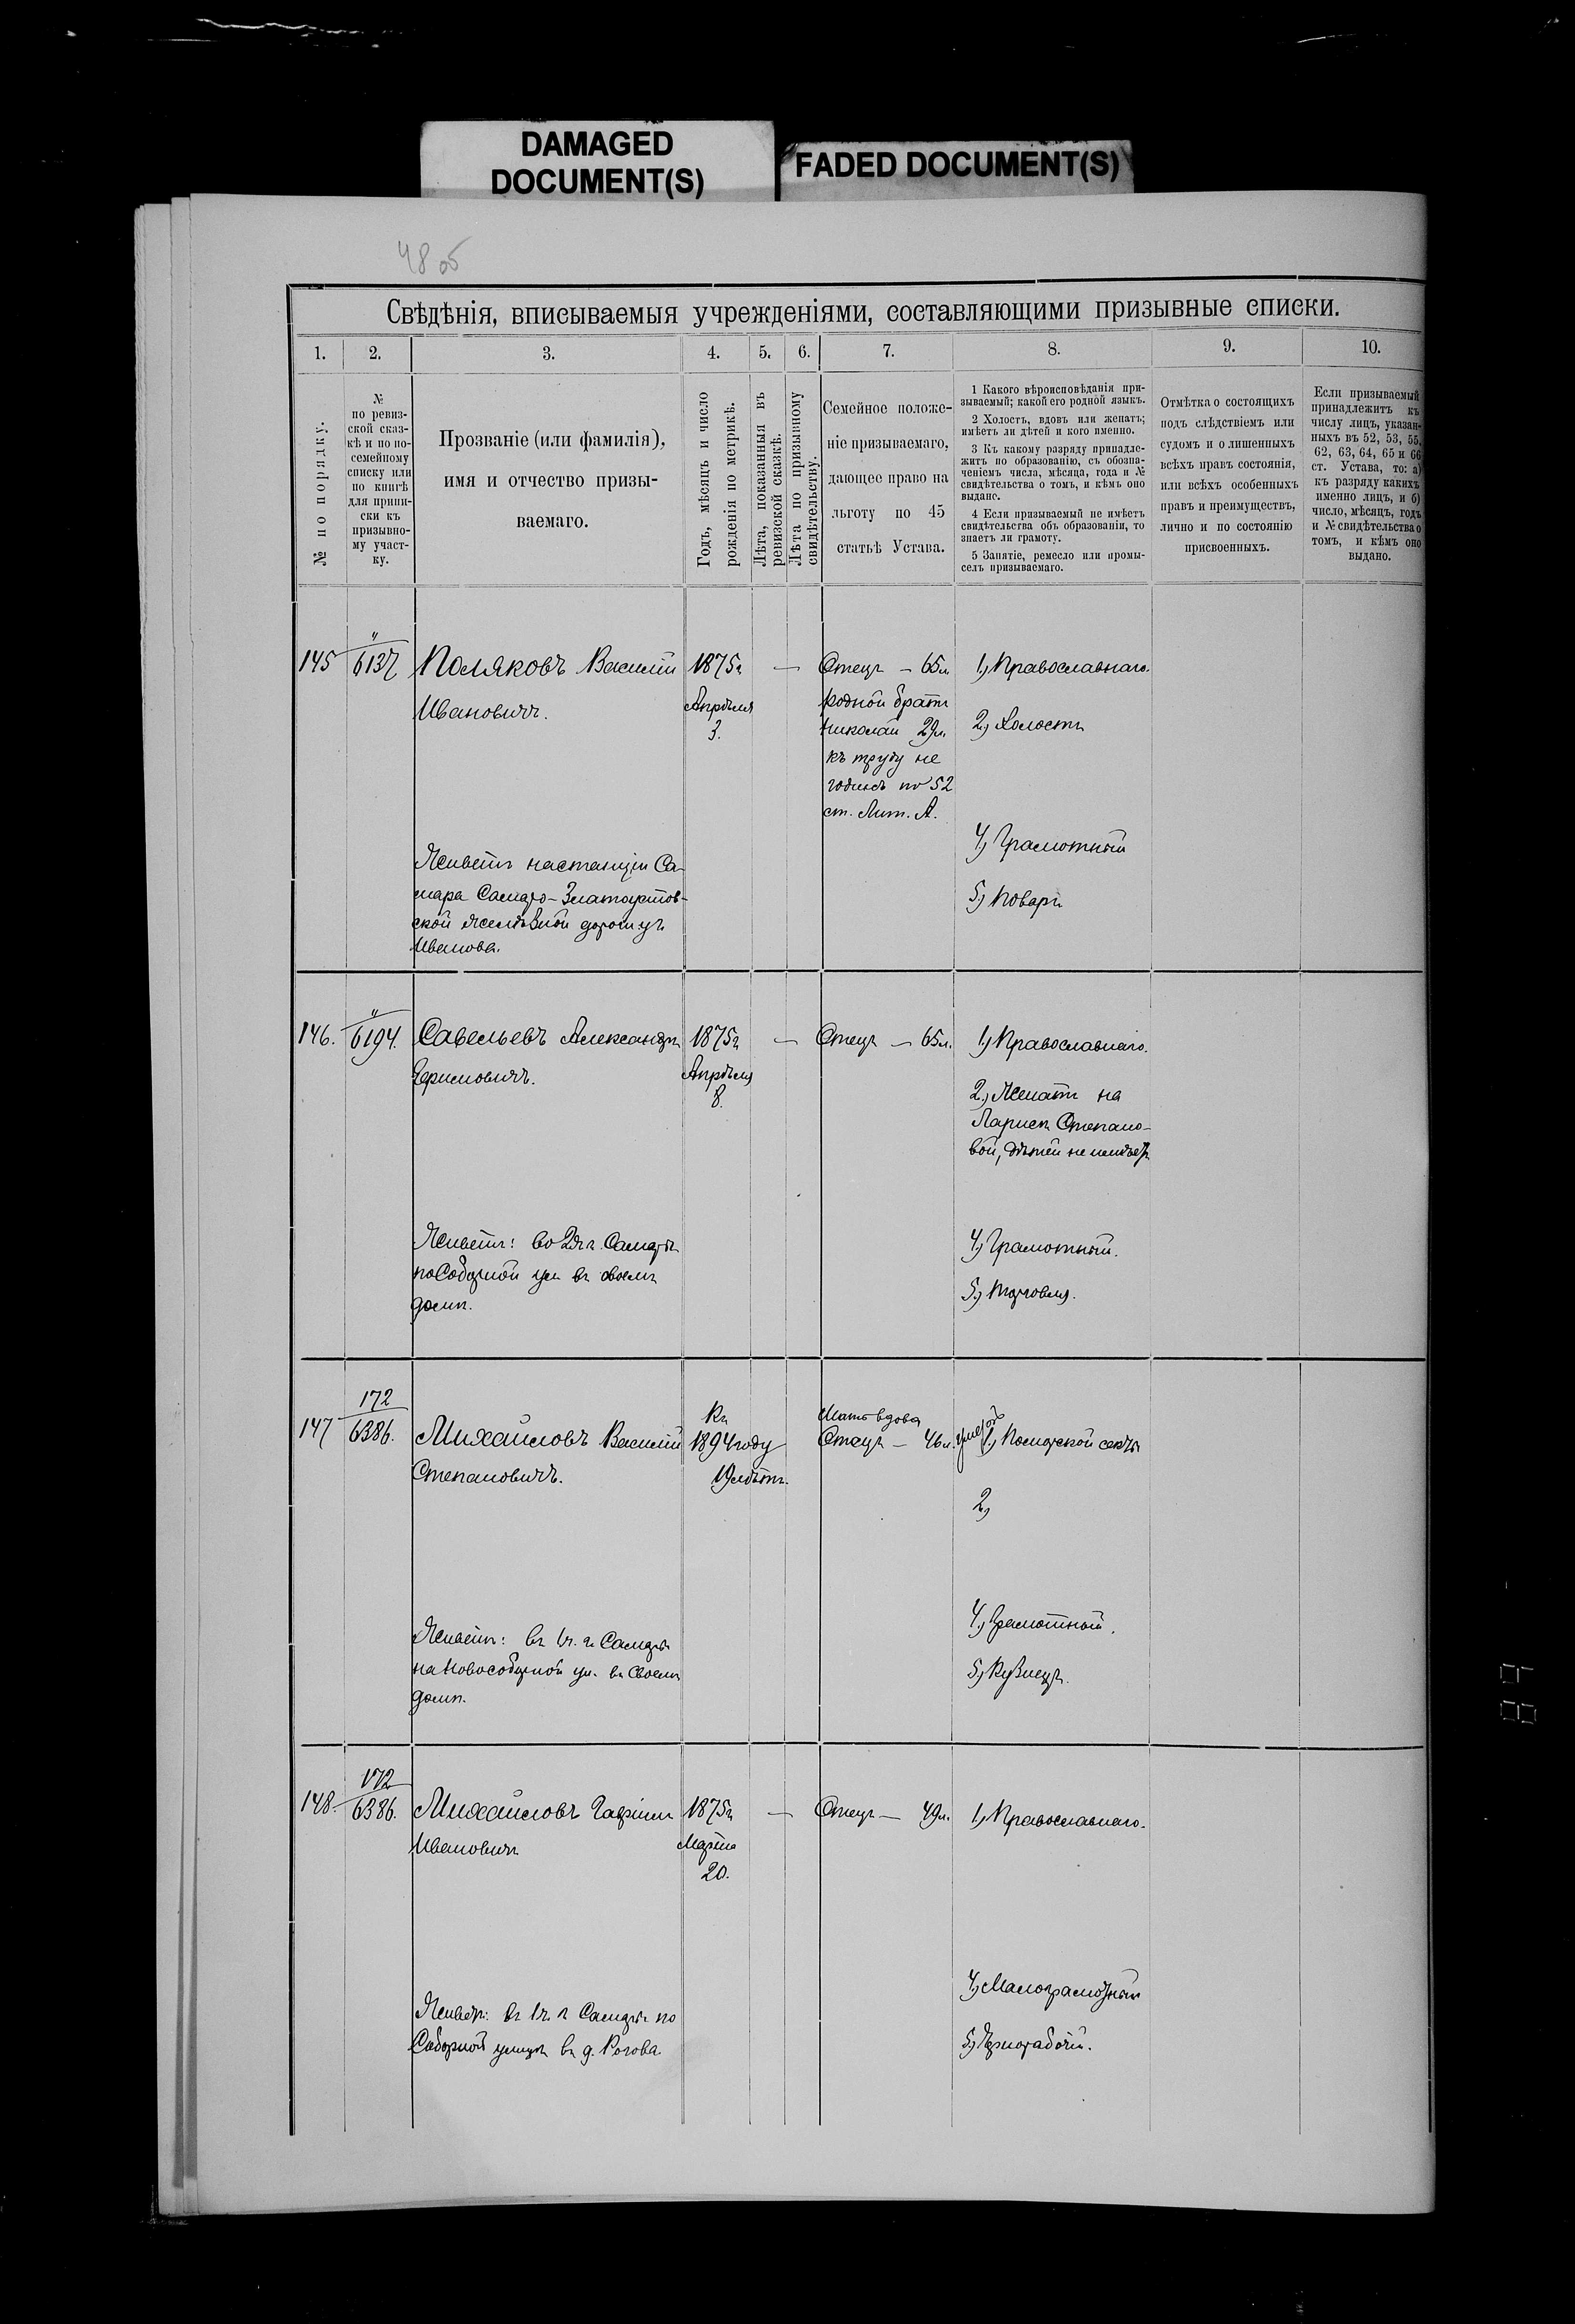 DAMAGED
DOCUMENT(S)
FADED DOCUMENT(S)
48 об
Свѣдѣнія, вписываемыя учрежденіями, составляющими призывные списки.
1.
2.
3.
4.
5.
6.
7.
8.
9.
10.
№ по порядку.
№
по ревиз-
ской сказ-
кѣ и по по-
семейному
списку или
по книгѣ
для припи-
ски къ
призывно-
му участ-
ку.
Прозваніе (или фамилія),
имя и отчество призы-
ваемаго.
Годъ, мѣсяцъ и число
рожденія по метрикѣ.
Лѣта, показанныя въ
ревизской сказкѣ.
Лѣта по призывному
свидѣтельству.
Семейное положе-
ніе призываемаго,
дающее право на
льготу по 45
статьѣ Устава.
1 Какого вѣроисповѣданія при-
зываемый; какой его родной языкъ.
2 Холостъ, вдовъ или женатъ;
имѣетъ ли дѣтей и кого именно.
3 Къ какому разряду принадле-
житъ по образованію, съ обозна-
ченіемъ числа, мѣсяца, года и №
свидѣтельства о томъ, и кѣмъ оно
выдано.
4 Если призываемый не имѣетъ
свидѣтельства объ образованіи, то
знаетъ ли грамоту.
5 Занятіе, ремесло или промы-
селъ призываемаго.
Отмѣтка о состоящихъ
подъ слѣдствіемъ или
судомъ и о лишенныхъ
всѣхъ правъ состоянія,
или всѣхъ особенныхъ
правъ и преимуществъ,
лично и по состоянію
присвоенныхъ.
Если призываемый
принадлежитъ къ
числу лицъ, указан-
ныхъ въ 52, 53, 55,
62, 63, 64, 65 и 66
ст. Устава, то: а)
къ разряду какихъ
именно лицъ, и б)
число, мѣсяцъ, годъ
и № свидѣтельства о
томъ, и кѣмъ оно
выдано.
145
"
6137
Поляковъ Василій
Ивановичъ.
Живетъ на станціи Са-
мара Самаро-Златоустов-
ской желѣзной дороги у
Иванова.
1875г
Апрѣля
3.
—
Отецъ – 65л
родной братъ
Николай 29л.
къ труду не
годенъ по 52
ст. Лит. А.
1, Православнаго.
2, Холостъ
4, Грамотный
5, Поваръ
146.
"
6194.
Савельевъ Александръ
Живетъ: во 2й ч. г. Самары
по Соборной ул. въ своемъ
домѣ.
1875г
Апрѣля
8.
—
Отецъ – 65л.
1, Православнаго.
2, Женатъ на
Степано-
вой, дѣтей не имѣетъ
4, Грамотный.
5, Торговля.
147
172
6386.
Михайловъ Василій
Степановичъ.
Живетъ: въ 1ч. г. Самары
на Новособорной ул. въ своемъ
домѣ.
Къ
1894 году
19 лѣтъ.
Мать вдова
Отецъ – 46л. умеръ
1, Поморской секты
2,
4, Грамотный.
5, Кузнецъ.
148.
172
6386.
Михайловъ Гавріилъ
Ивановичъ
Живетъ: въ 1ч. г. Самары по
Соборной улицѣ въ д. Рогова.
1875г
Марта
20.
—
Отецъ – 49л.
1, Православнаго.
4, Малограмотный
5, Чернорабочій.
89